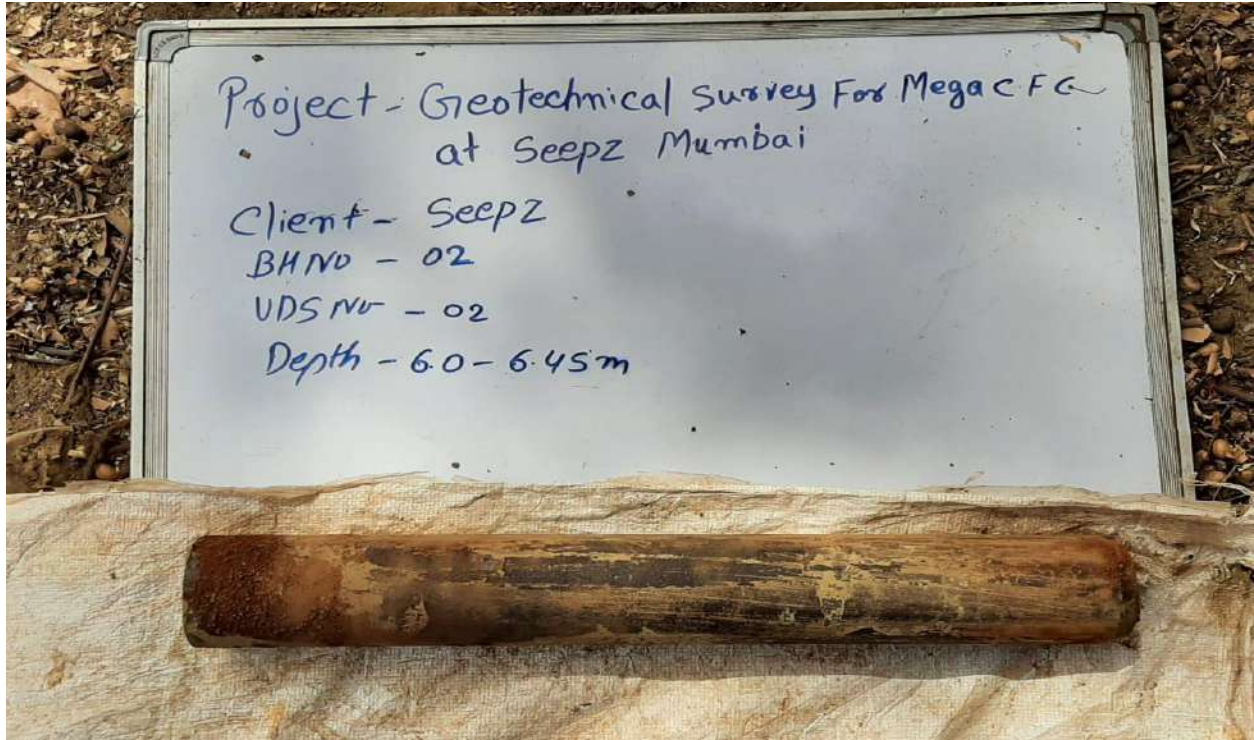 Project - Geotechnical Survey For Mega C F C
at Seepz Mumbai
Client - Seepz
BH NO - 02
UDS No - 02
Depth - 6.0 - 6.45m